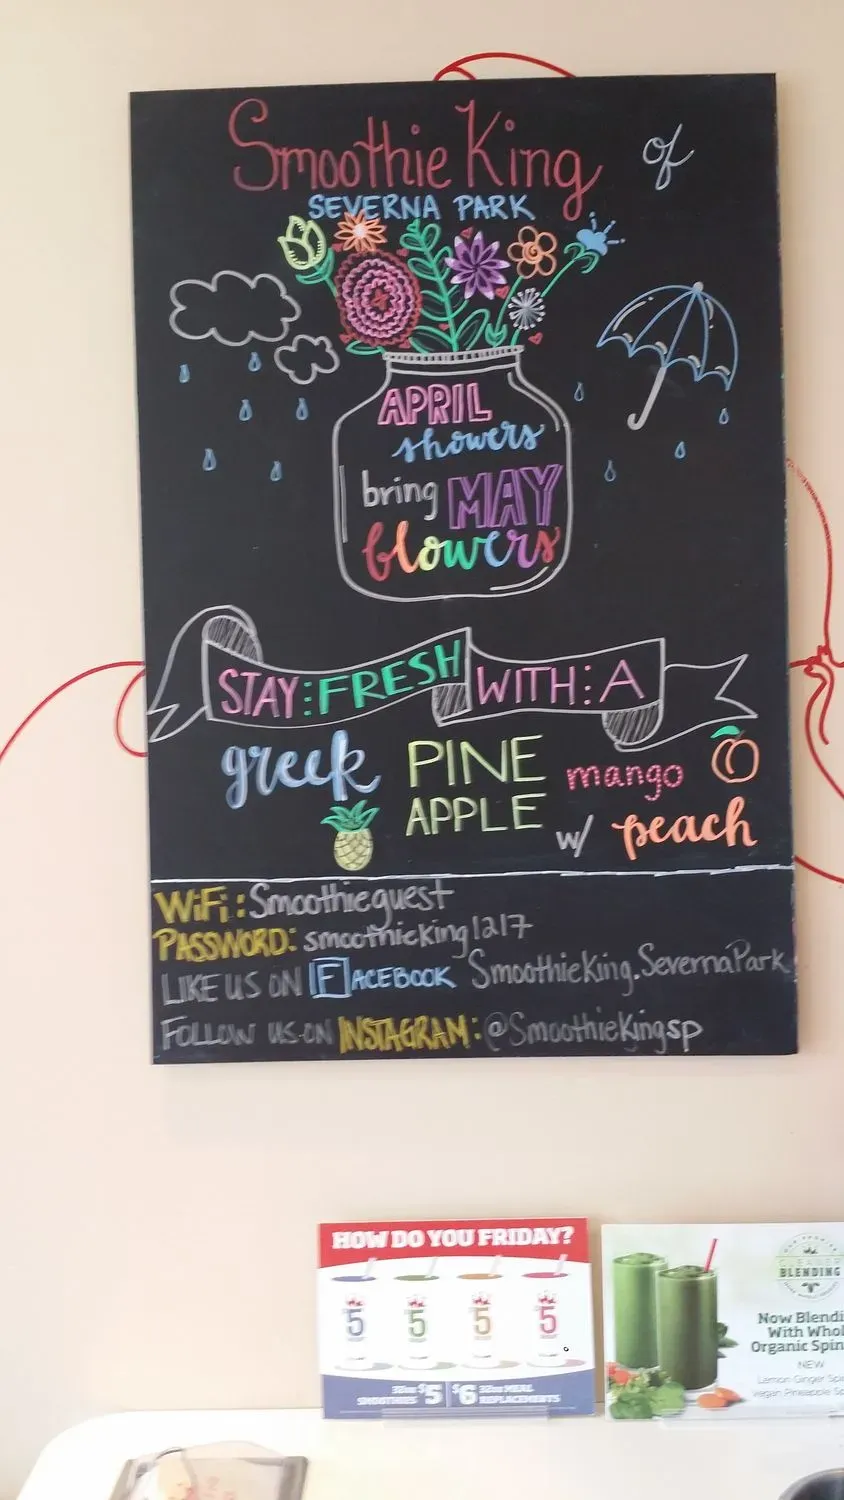 Smoothie King of
SEVERNA PARK
APRIL
showers
bring MAY
flowers
STAY: FRESH WITH: A
greek PINE mango
APPLE w/ peach
WiFi: Smoothieguest
PASSWORD: smoothieking1217
LIKE US ON FACEBOOK SmoothieKing.SevernaPark
FOLLOW US ON INSTAGRAM: @SmoothieKingsp
HOW DO YOU FRIDAY?
5 5 5 5
32oz SMOOTHIES $5 $6 32oz MEAL REPLACEMENTS
CLEANER
BLENDING
Now Blendi
With Whol
Organic Spin
NEW
Lemon Ginger Spi
Vegan Pineapple Sp